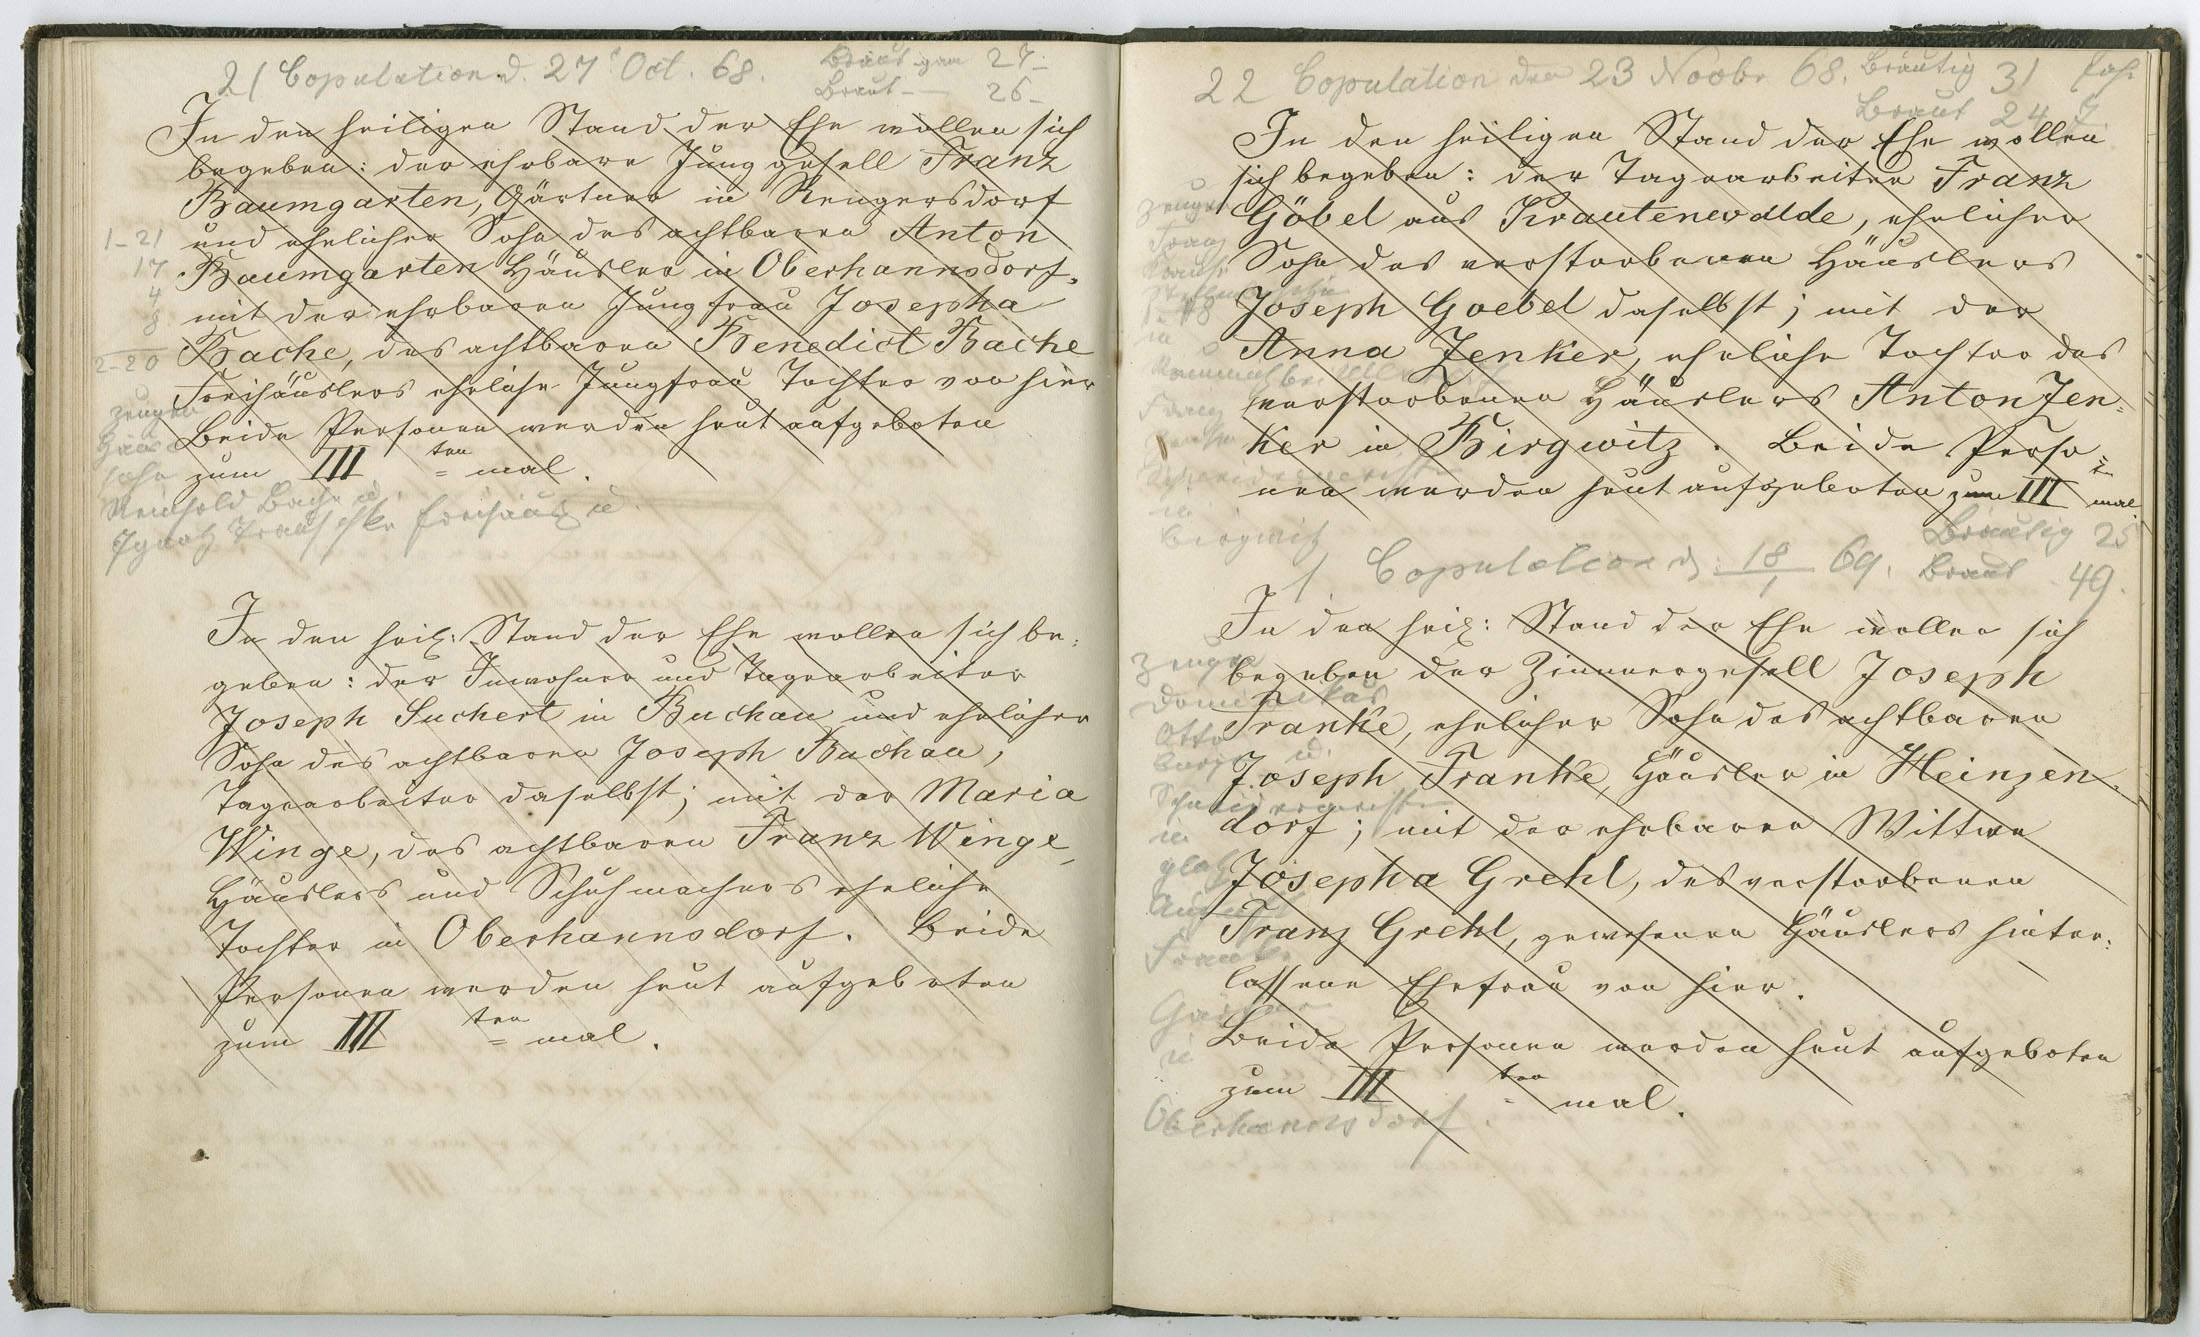 21 Copulation d. 27 Oct. 68.
Bräutigam 27
Braut 26
In den heiligen Stand der Ehe wollen sich
begeben: der ehrbare Junggesell Franz
Baumgarten, Gärtner in Rengersdorf
und ehelicher Sohn des achtbaren Anton
Baumgarten Häusler in Oberhannsdorf,
mit der ehrbaren Jungfrau Josepha
Bache, des achtbaren Benedict Bache
Freihäuslers eheliche Jungfrau Tochter von hier
Beide Personen werden heut aufgeboten
zum III ten = mal.
1-21
17
4
8
2-20
Zeugen
Häus
sohn
Reinhold Bache u
Ignatz Freihäus
In den heil: Stand der Ehe wollen sich be:
geben: der Inwohner und Tagearbeiter
Joseph Suchert in Buchau und ehelicher
Sohn des achtbaren Joseph Buchau,
Tagearbeiter daselbst; mit der Maria
Winge, des achtbaren Franz Winge,
Häuslers und Schuhmachers eheliche
Tochter in Oberhannsdorf. Beide
Personen werden heut aufgeboten
zum III ten = mal.
22 Copulation den 23 Novbr 68.
Bräutig 31 Jahr
Braut 24 J
In den heiligen Stand der Ehe wollen
sich begeben: der Tagearbeiter Franz
Göbel aus Krautenwalde, ehelicher
Sohn des verstorbenen Häuslers
Joseph Goebel daselbst; mit der
Anna Zenker, eheliche Tochter des
verstorbenen Häuslers Anton Zen=
ker in Birgwitz. Beide Perso=
nen werden heut aufgeboten zum III mal.
Zeugen
Franz
in
Franz
in
Birgwitz
1. Copulation d. 18/1 69.
Bräutig 25
Braut 49.
In den heil: Stand der Ehe wollen sich
begeben der Zimmergesell Joseph
Franke, ehelicher Sohn des achtbaren
Joseph Franke, Häusler in Heinzen=
dorf; mit der ehrbaren Wittwe
Josepha Grehl, des verstorbenen
Franz Grehl, gewesenen Häuslers hinter:
lassene Ehefrau von hier.
Beide Personen werden heut aufgeboten
zum III ten = mal.
Zeugen
Otto
in
Glatz
August
Franke
Gärtner
in
Oberhannsdorf.